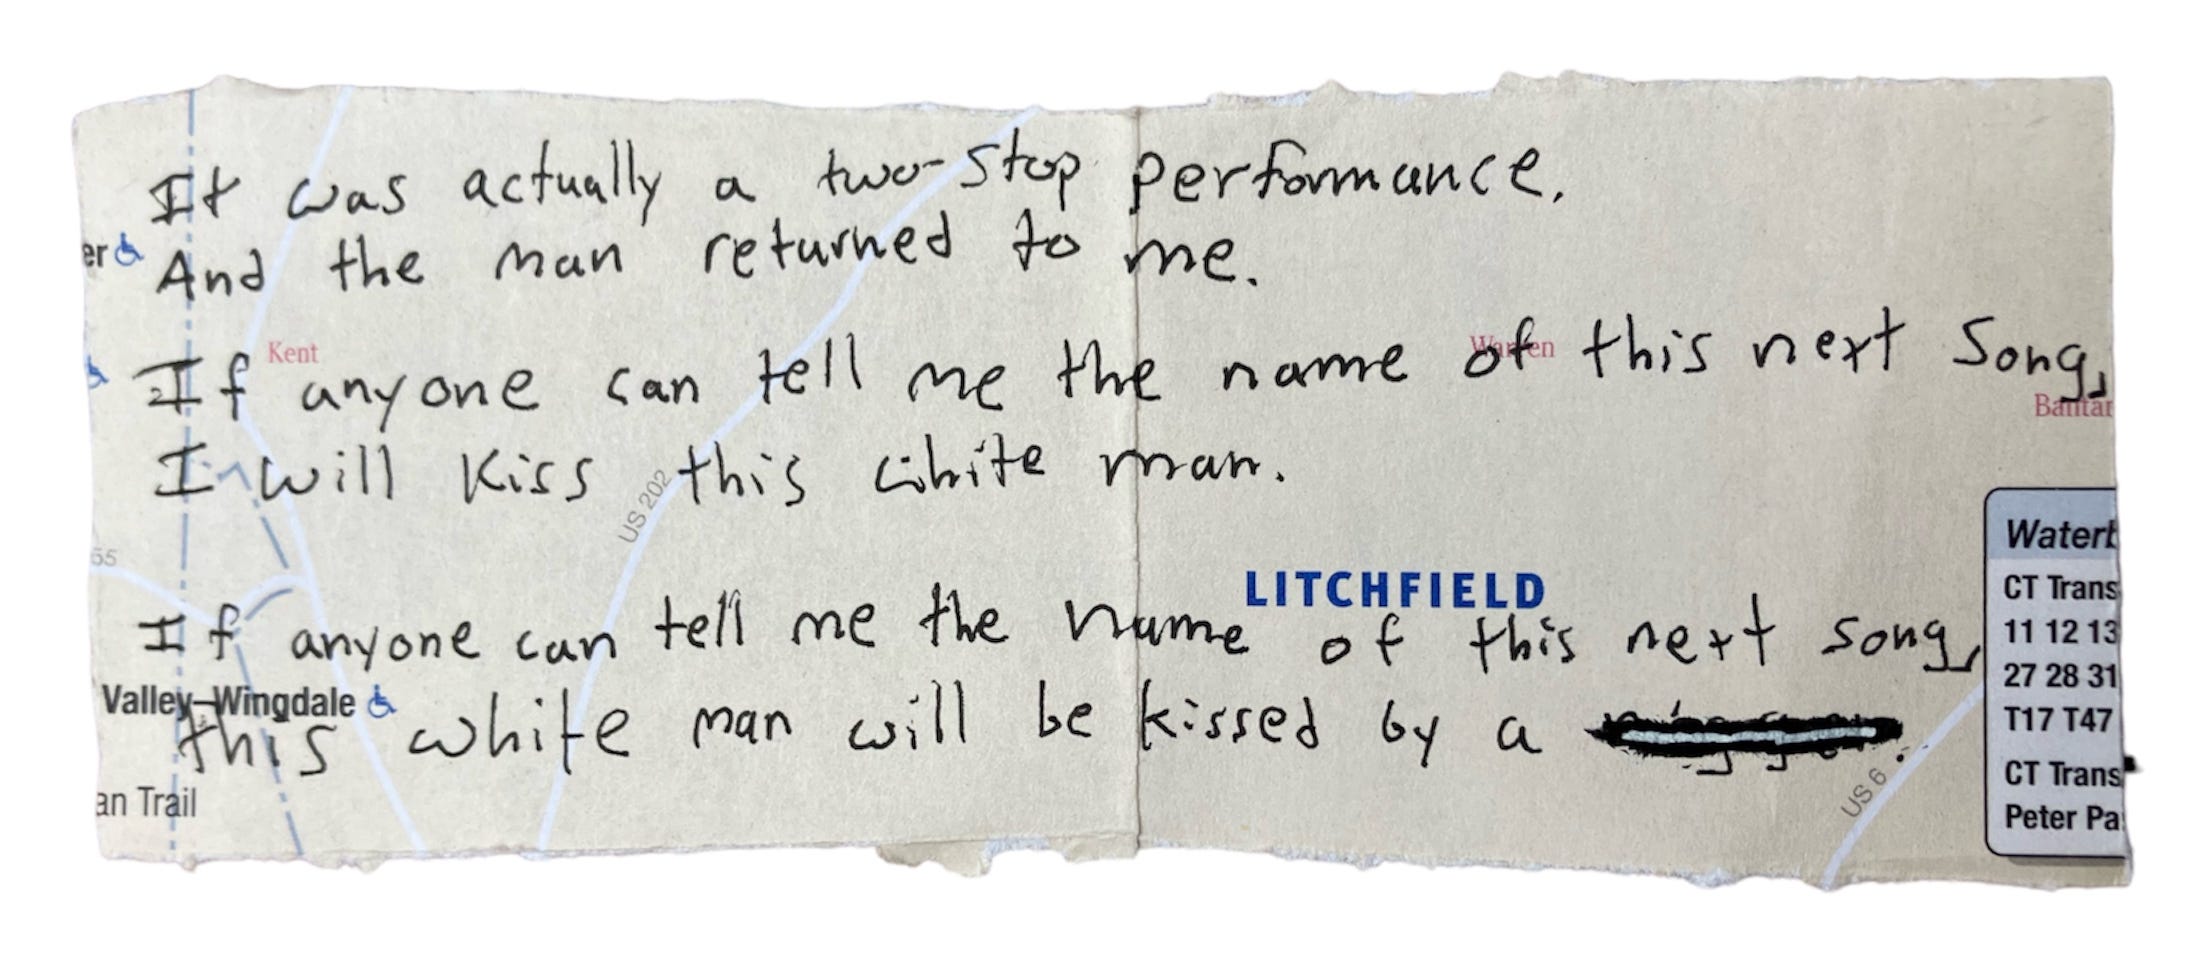 It was actually a two-stop performance.
er
And the man returned to me.
Kent
Warren
If anyone can tell me the name of this next song,
Bantar
I will kiss this white man.
US 202
Watert
55
CT Trans
LITCHFIELD
If anyone can tell me the name of this next song,
11 12 13
27 28 31
Valley–Wingdale
this white man will be kissed by a
T17 T47
CT Trans
US 6
an Trail
Peter Pa